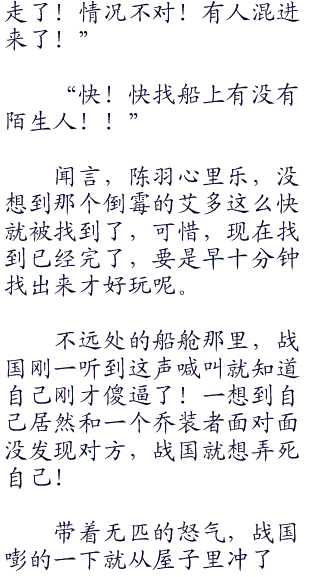 走了！情况不对！有人混进
来了！”
“快！快找船上有没有
陌生人！！”
闻言，陈羽心里乐，没
想到那个倒霉的艾多这么快
就被找到了，可惜，现在找
到已经完了，要是早十分钟
找出来才好玩呢。
不远处的船舱那里，战
国刚一听到这声喊叫就知道
自己刚才傻逼了！一想到自
己居然和一个乔装者面对面
没发现对方，战国就想弄死
自己！
带着无匹的怒气，战国
嘭的一下就从屋子里冲了